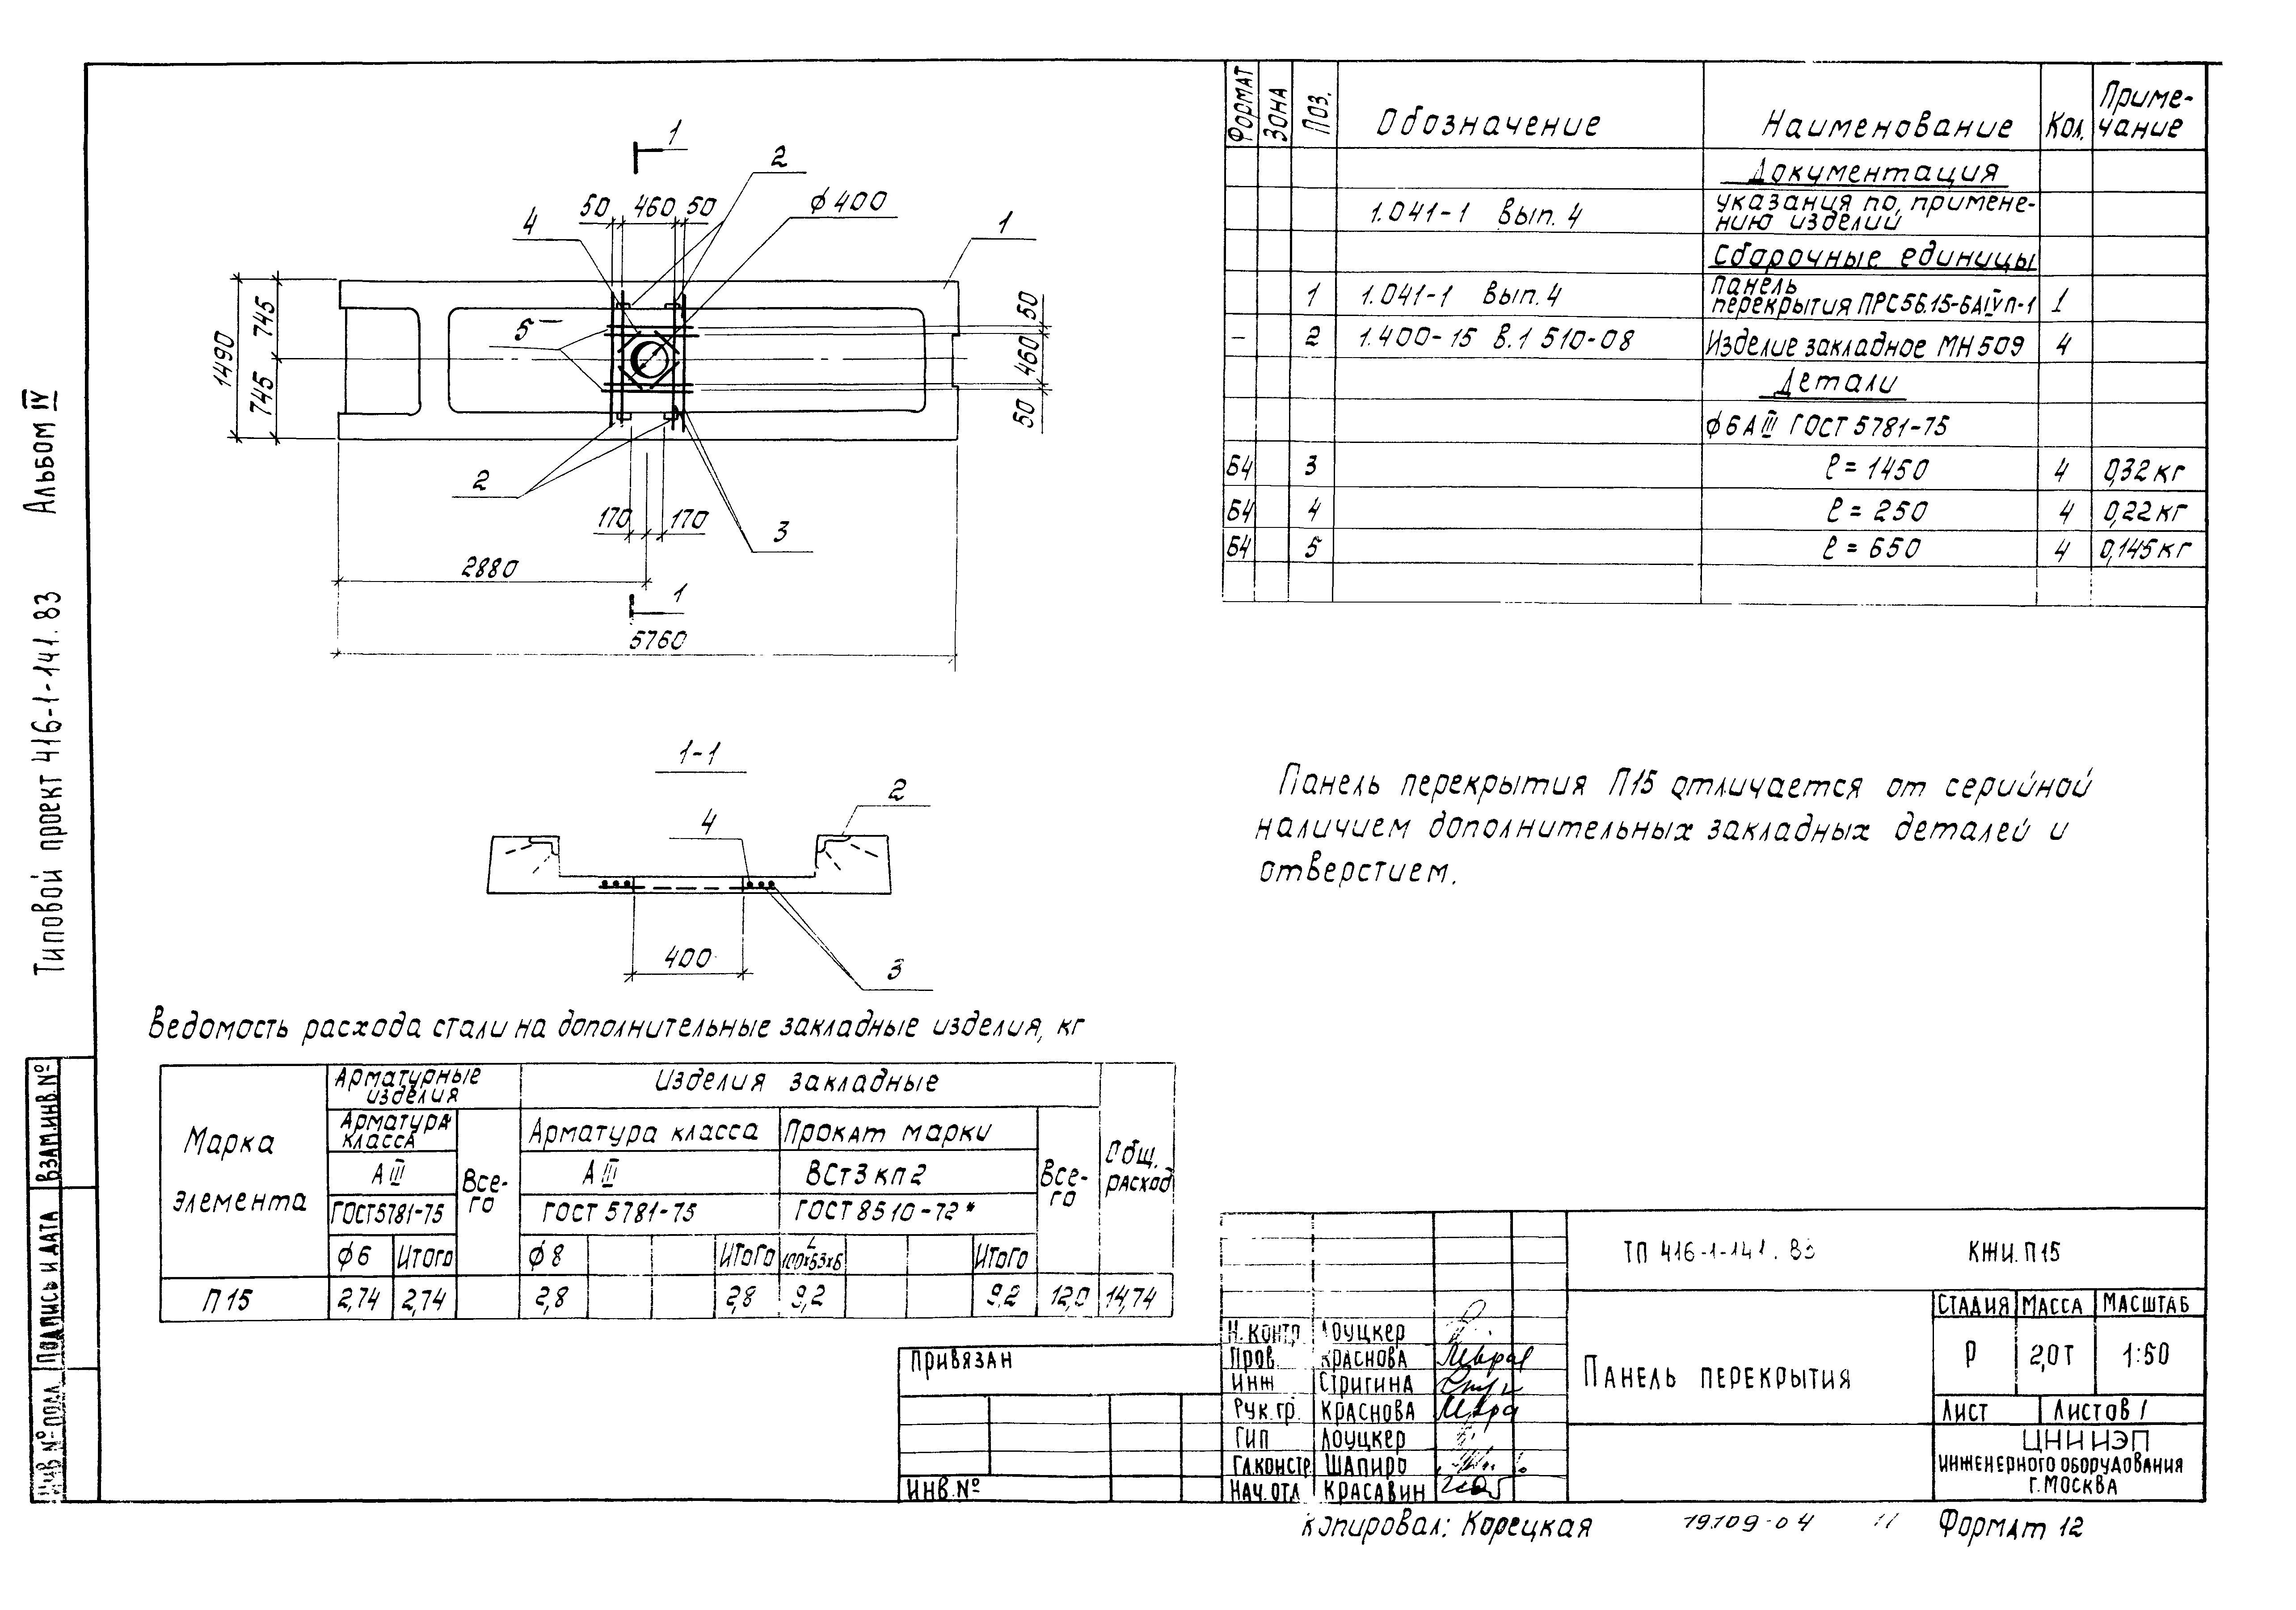 Типовой проект 416-1-141.83 Альбом IV
1
2
50 460 50
ф400
4
1
745
1490
745
5
50
460
50
2
170 170
3
2880
1
5760
1-1
2
4
400
3
ФОРМАТ ЗОНА ПОЗ. Обозначение Наименование Кол. Приме-
чание
Документация
1.041-1 Вып. 4 указания по примене-
нию изделий
Сборочные единицы
1 1.041-1 Вып. 4 панель
перекрытия ПРС56.15-6АIVп-1 1
- 2 1.400-15 В.1 510-08 Изделие закладное МН509 4
Детали
ф6АIII ГОСТ 5781-75
Б4 3 ℓ = 1450 4 0,32кг
Б4 4 ℓ = 250 4 0,22кг
Б4 5 ℓ = 650 4 0,145кг
Панель перекрытия П15 отличается от серийной
наличием дополнительных закладных деталей и
отверстием.
Ведомость расхода стали на дополнительные закладные изделия, кг
Марка
элемента
Арматурные
изделия
Изделия закладные
Общ.
расход
Арматура
класса
Все-
го
Арматура класса Прокат марки
Все-
го
АIII АIII ВСт3кп2
ГОСТ5781-75 ГОСТ 5781-75 ГОСТ8510-72*
ф6 Итого ф8 Итого L
100х63х6 Итого
П15 2,74 2,74 2,8 2,8 9,2 9,2 12,0 14,74
ВЗАМ.ИНВ.№
ПОДПИСЬ И ДАТА
ИНВ.№ПОДЛ.
ПРИВЯЗАН
ИНВ.№
ТП 416-1-141.83 КЖИ.П15
Н.КОНТР ЛОУЦКЕР
ПРОВ. КРАСНОВА
ИНЖ СТРИГИНА
РУК.ГР. КРАСНОВА
ГИП ЛОУЦКЕР
ГЛ.КОНСТР ШАПИРО
НАЧ.ОТД КРАСАВИН
ПАНЕЛЬ ПЕРЕКРЫТИЯ
СТАДИЯ МАССА МАСШТАБ
Р 2,0Т 1:50
ЛИСТ ЛИСТОВ 1
ЦНИИЭП
ИНЖЕНЕРНОГО ОБОРУДОВАНИЯ
Г.МОСКВА
Копировал: Корецкая 19709-04 11 ФОРМАТ 12